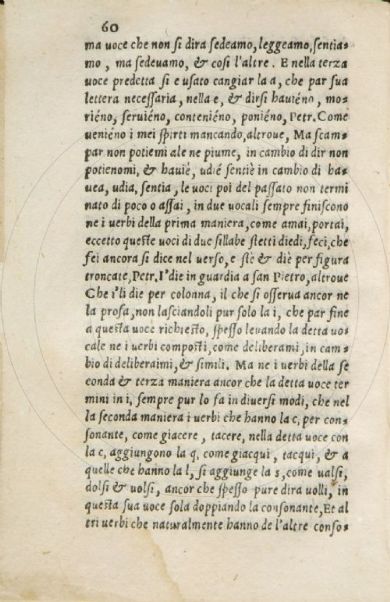 60
ma voce che non si dira sedeamo, leggeamo, sentia-
mo, ma sedevamo, & cosi l'altre. E nella terza
voce predetta si e usato cangiar la a, che par sua
lettera necessaria, nella e, & dirsi haviéno, mo-
riéno, serviéno, conteniéno, poniéno, Petr. Come
veniéno i mei spirti mancando, altroue, Ma scam-
par non potiemi ale ne piume, in cambio di dir non
potienomi, & havié, udié sentiè in cambio di ha-
uea, udia, sentia, le voci poi del passato non termi
nate di poco o assai, in due vocali sempre finiscono
ne i verbi della prima maniera, come amai, portai,
eccetto queste voci di due sillabe stetti diedi, feci, che
fei ancora si dice nel verso, e stè & diè per figura
troncate, Petr. I'die in guardia a san Pietro, altroue
Che i'li die per colonna, il che si osserua ancor ne
la prosa, non lasciandoli pur solo la i, che par fine
a questa voce richiesto, spesso levando la detta vo-
cale ne i verbi composti, come deliberami, in cam-
bio di deliberaimi, & simili. Ma ne i verbi della se
conda & terza maniera ancor che la detta voce ter
mini in i, sempre pur lo fa in diversi modi, che nel
la seconda maniera i verbi che hanno la c, per con-
sonante, come giacere, tacere, nella detta voce con
la c, aggiungono la q, come giacqui, tacqui, & a
quelle che hanno la l, si aggiunge la s, come valsi,
dolsi & volsi, ancor che spesso pure dira volli, in
questa sua voce sola doppiando la consonante, Et al
tri verbi che naturalmente hanno de l'altre conso-